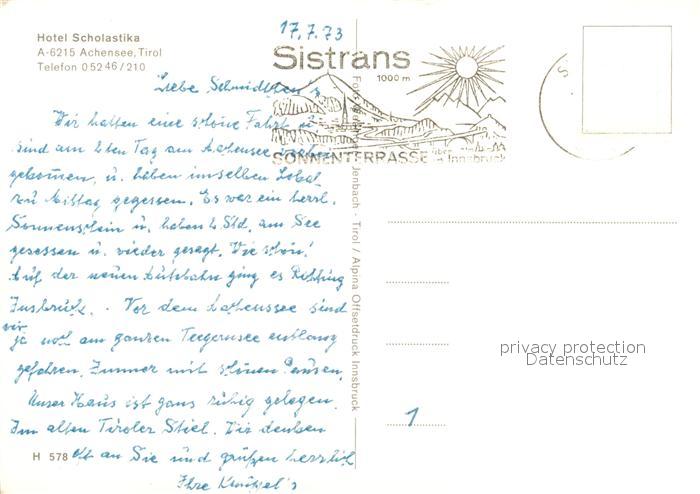 Hotel Scholastika
A-6215 Achensee, Tirol
Telefon 05246/210
17.7.73
Sistrans
1000 m
SONNENTERRASSE über Innsbruck
Liebe
Wir hatten eine schöne Fahrt u.
sind am 2ten Tag am Achensee vorbei
gekommen, u. haben im selben Lokal
zu Mittag gegessen. Es war ein herrl.
Sonnenschein u. haben 2 Std. am See
gesessen u. wieder gesagt. Wie schön!
Auf der neuen Autobahn ging es Richtung
Innsbruck. Vor dem Achensee sind
wir
ja noch am ganzen Tegernsee entlang
gefahren. Immer mit schönen Pausen.
Unser Haus ist ganz ruhig gelegen.
Im alten Tiroler Stiel. Wir denken
oft an Sie und grüßen herzlich
Ihre
H 578
Jenbach - Tirol / Alpina Offsetdruck Innsbruck
privacy protection
Datenschutz
1